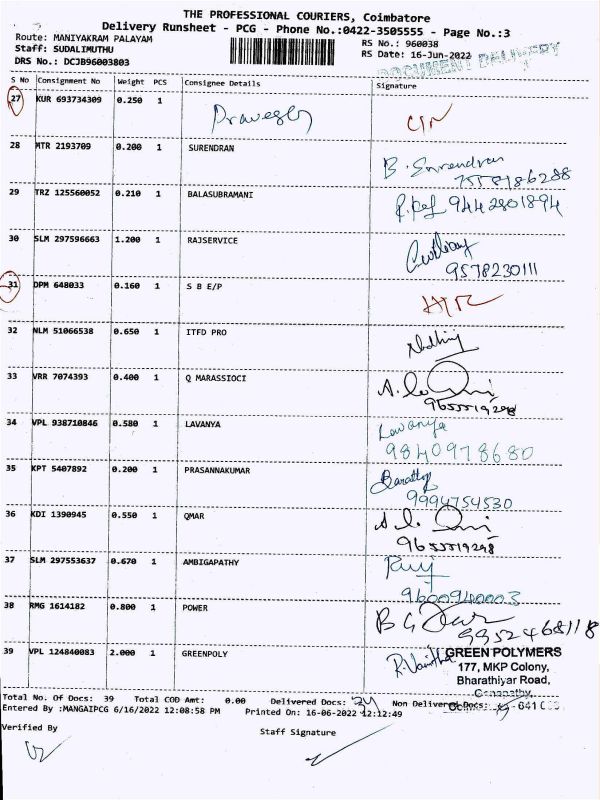 THE PROFESSIONAL COURIERS, Coimbatore
Delivery Runsheet - PCG - Phone No.:0422-3505555 - Page No.:3
Route: MANIYAKRAM PALAYAM
RS No.: 960038
Staff: SUDALIMUTHU
RS Date: 16-Jun-2022
DRS No.: DCJB96003803
DOCUMENT DELIVERY
S No Consignment No Weight PCS Consignee Details Signature
27 KUR 693734309 0.250 1
28 MTR 2193709 0.200 1 SURENDRAN B. Surendran
7558986288
29 TRZ 125560052 0.210 1 BALASUBRAMANI 9442801894
30 SLM 297596663 1.200 1 RAJSERVICE
9578230111
31 DPM 648033 0.160 1 S B E/P
32 NLM 51066538 0.650 1 ITFD PRO
33 VRR 7074393 0.400 1 Q MARASSIOCI
9655519298
34 VPL 938710846 0.580 1 LAVANYA Lavanya
9840978680
35 KPT 5407892 0.200 1 PRASANNAKUMAR
9994754530
36 KDI 1390945 0.550 1 QMAR
9655519298
37 SLM 297553637 0.670 1 AMBIGAPATHY
9600940003
38 RMG 1614182 0.800 1 POWER
9952468118
39 VPL 124840083 2.000 1 GREENPOLY
GREEN POLYMERS
177, MKP Colony,
Bharathiyar Road,
Ganapathy,
Total No. Of Docs: 39 Total COD Amt: 0.00 Delivered Docs: Non Delivered Docs:
Entered By :MANGAIPCG 6/16/2022 12:08:58 PM Printed On: 16-06-2022 12:12:49
Verified By
Staff Signature